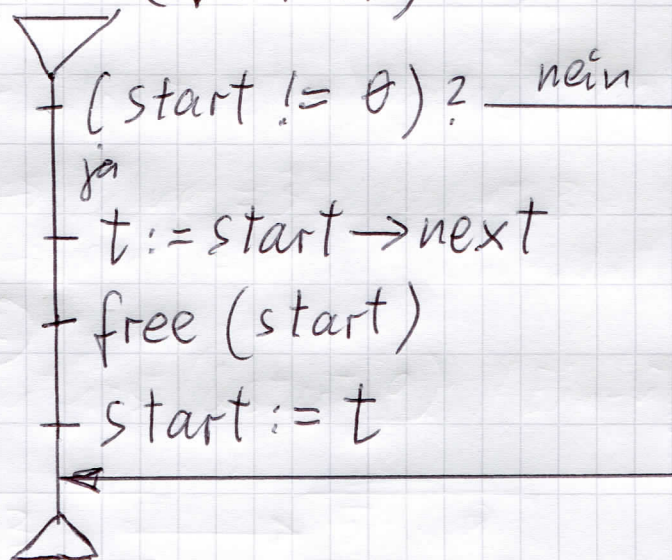 (start != 0)? nein
ja
t := start → next
free (start)
start := t